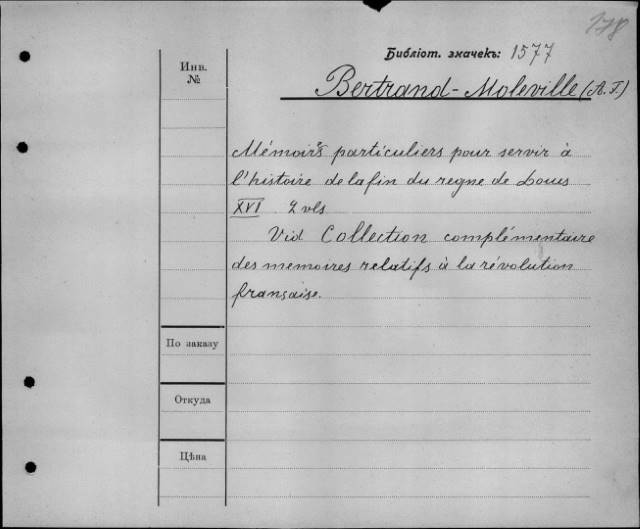 178
Библіот. значекъ: 1577
Инв.
№
Bertrand-Moleville (A. F.)
Mémoirs particuliers pour servir à
l'histoire de la fin du regne de Louis
XVI 2 vls
Vid Collection complémentaire
des memoires relatifs à la révolution
française.
По заказу
Откуда
Цѣна